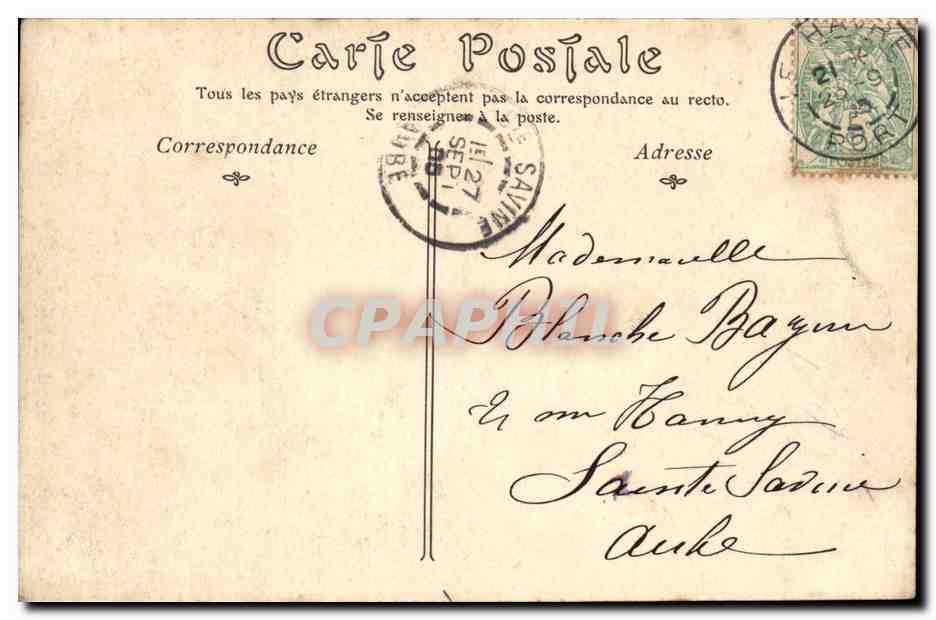 Carte Postale
Tous les pays étrangers n'acceptent pas la correspondance au recto.
Se renseigner à la poste.
Correspondance
Adresse
LE HAVRE
PORT
SAVINE
AUBE
27
SEPT
CPAPHIL
Mademoiselle
Blanche
Sainte Savine
Aube